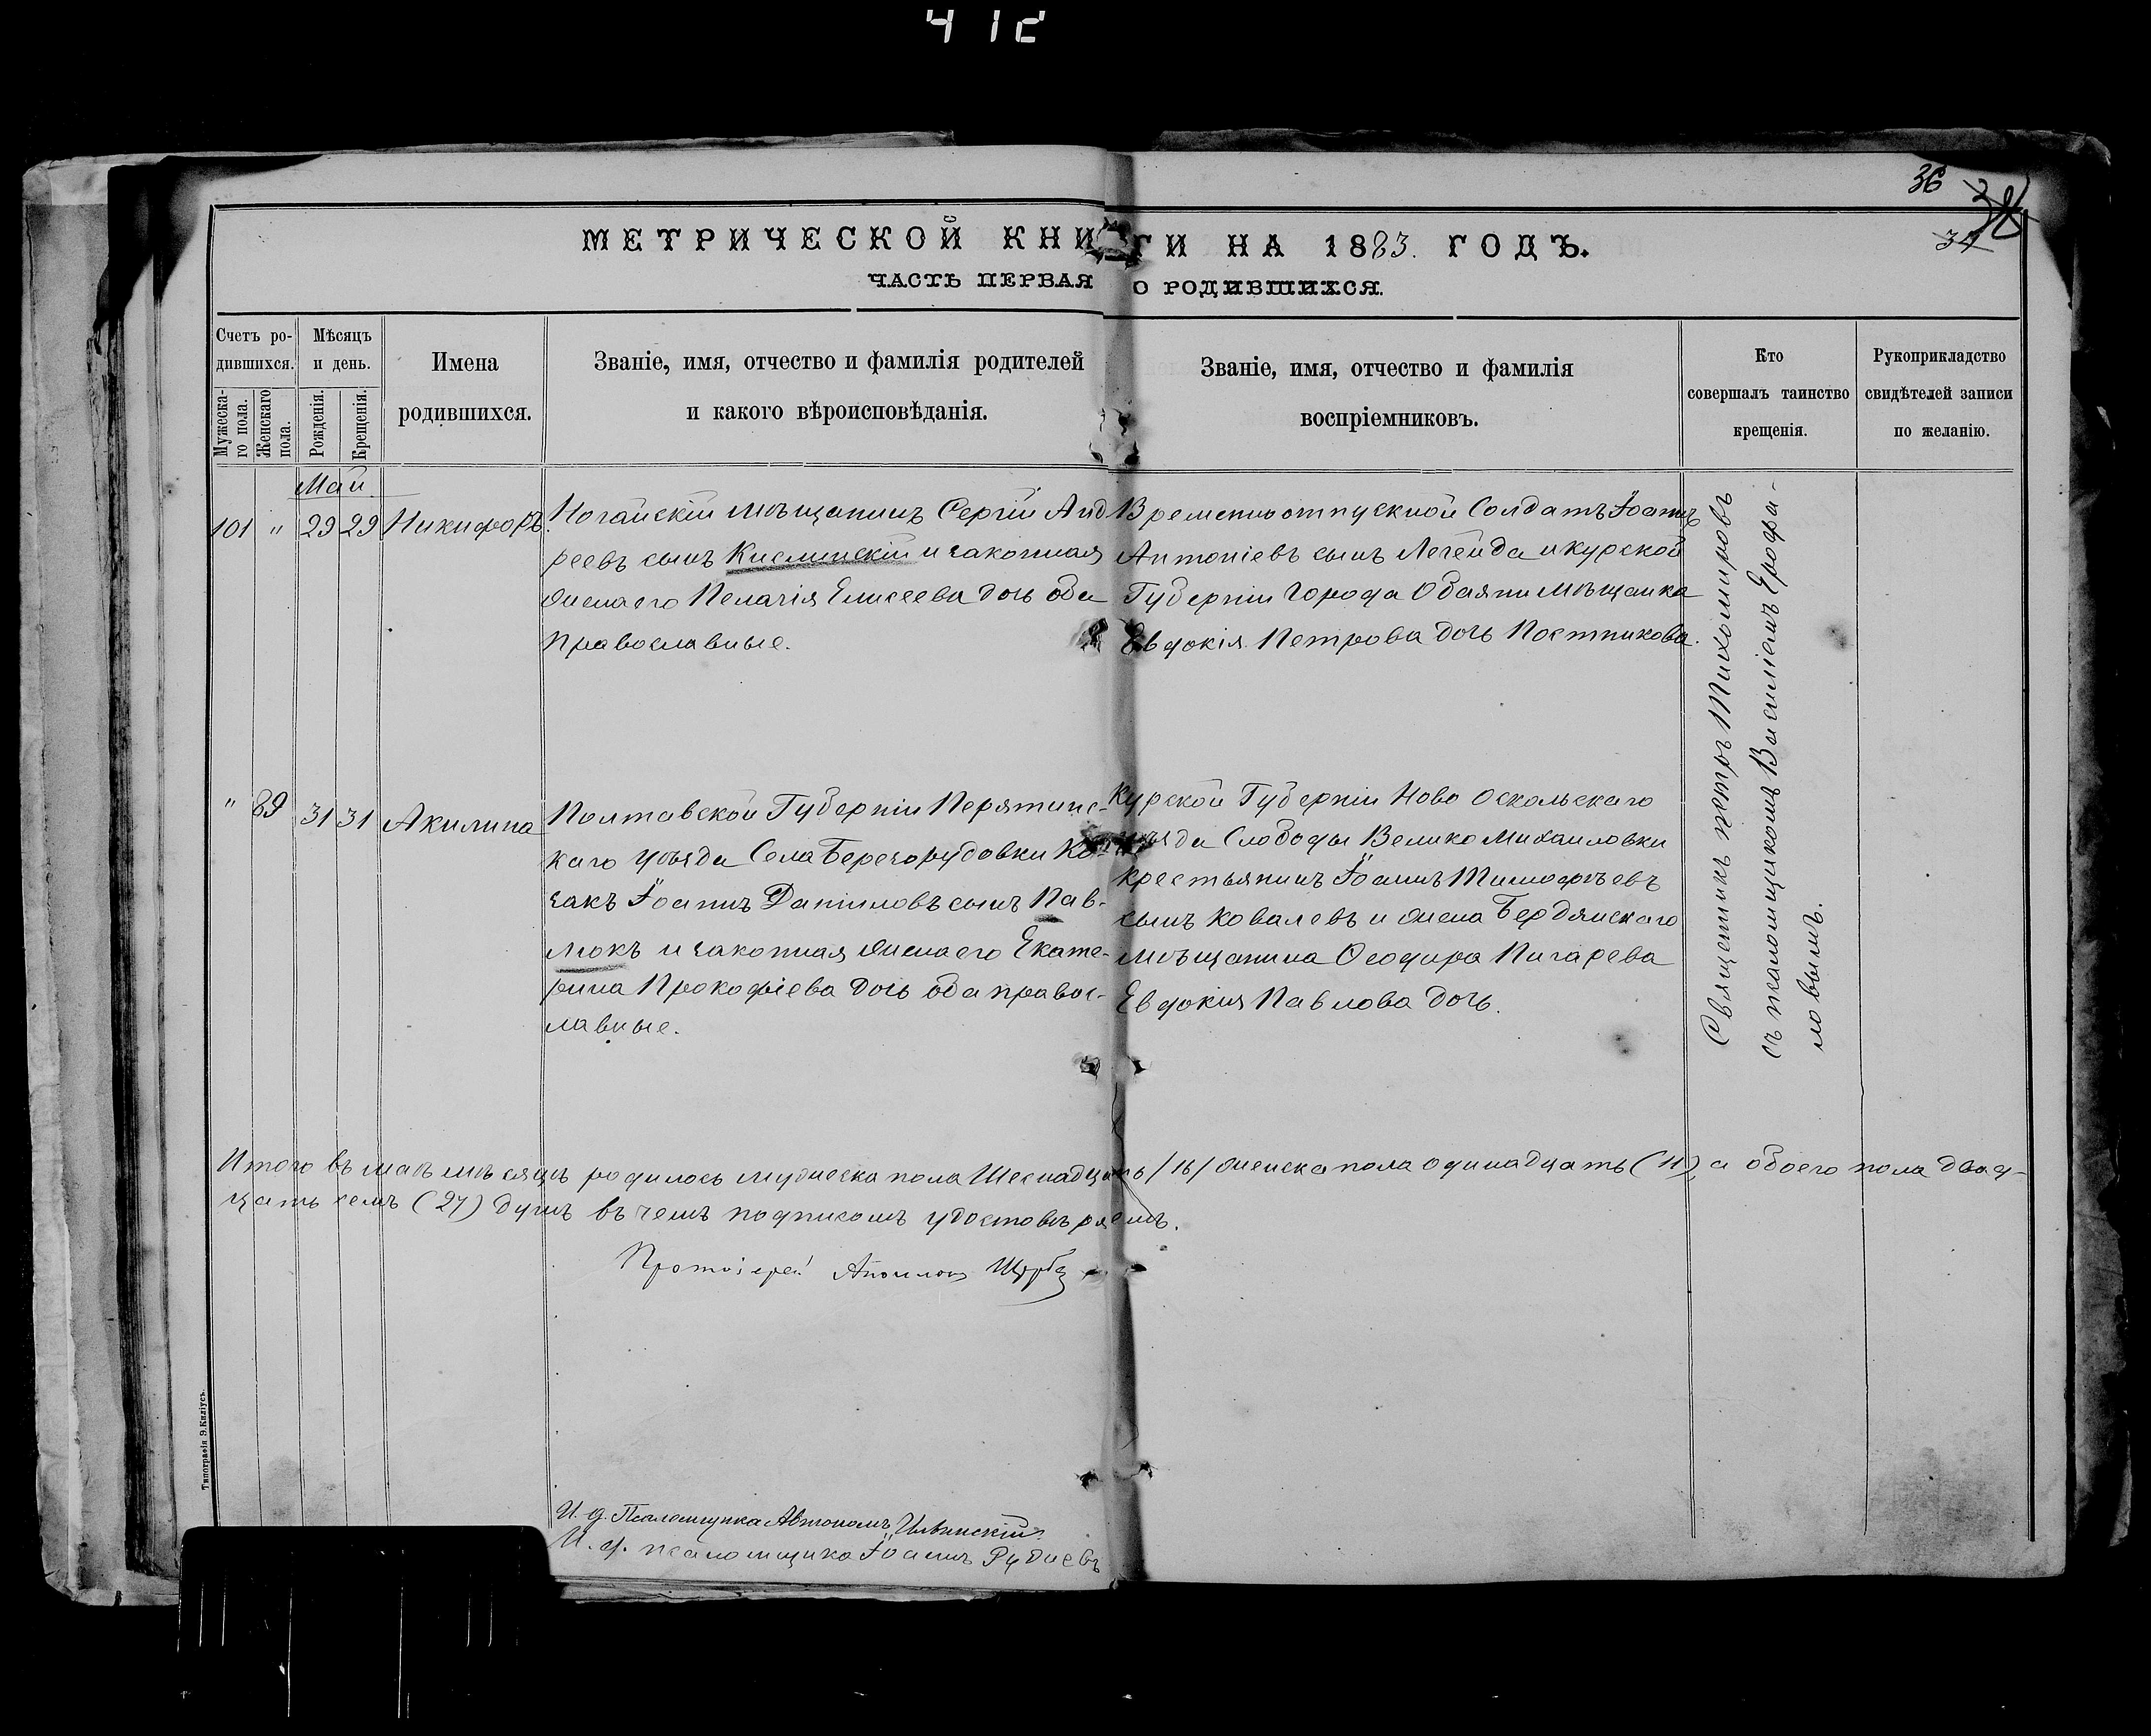 412
36
34
МЕТРИЧЕСКОЙ КНИГИ НА 1883. ГОДЪ.
ЧАСТЬ ПЕРВАЯ О РОДИВШИХСЯ.
Счетъ ро-
дившихся.
Мужеска-
го пола.
Женскаго
пола.
Мѣсяцъ
и день.
Рожденія.
Крещенія.
Имена
родившихся.
Званіе, имя, отчество и фамилія родителей
и какого вѣроисповѣданія.
Званіе, имя, отчество и фамилія
воспріемниковъ.
Кто
совершалъ таинство
крещенія.
Рукоприкладство
свидѣтелей записи
по желанію.
Май
101 " 29 29 Никифоръ.
Ногайскій мѣщанинъ Сергій Анд
реевъ сынъ Кисминскій и законная
жена его Пелагія Елисеева дочь оба
православные.
Временноотпускной Солдатъ Іоаннъ
Антоніевъ сынъ Легейда и курской
Губерніи Города Обаяни мѣщанка
Евдокія Петрова дочь Постникова.
" 89 31 31 Акилина
Полтавской Губерніи Перятинс-
каго уѣзда Села Березорудовки Ко-
закъ Іоаннъ Даніиловъ сынъ Пав-
люкъ и законная жена его Екате-
рина Прокофіева дочь оба правос-
лавные.
Курской Губерніи Ново Оскольскаго
уѣзда Слободы Велико Михаиловки
крестьянинъ Іоаннъ Тимофѣевъ
сынъ Ковалевъ и жена Бердянскаго
мѣщанина Ѳеодора Пигарева
Евдокия Павлова дочь.
Священникъ петръ Тихомировъ
съ псаломщикомъ Василіемъ Ерофа-
ловымъ.
Итого въ маѣ мѣсяцѣ родилось мужеска пола Шеснадцать /16/ женска пола одинадцать (11), а обоего пола двад-
цать семъ (27) душъ въ чемъ подпикомъ удостовѣряемъ.
Протоіерей Аполлонъ Щерба
И. д. Псаломщика Автономъ Ильинскій
И. д. псаломщика Іоаннъ Рудневъ
Типографія Э.Киліусъ.